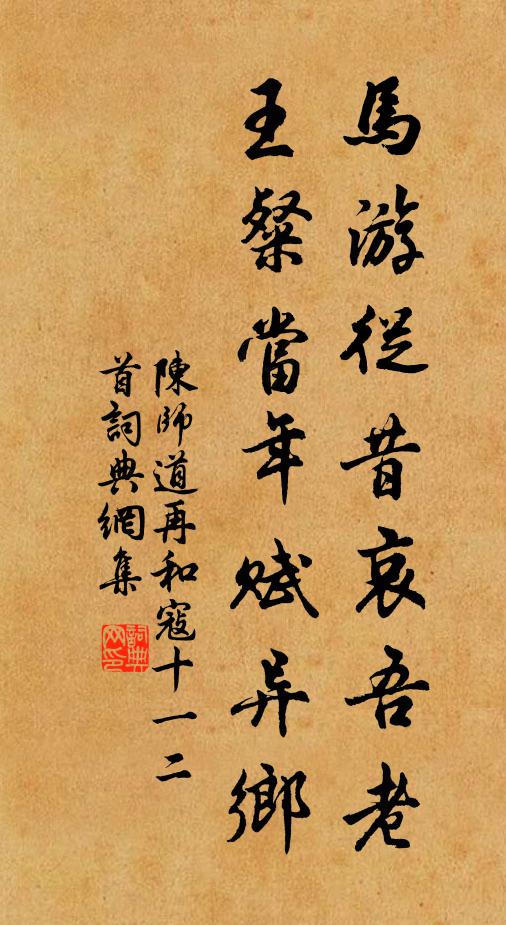 馬游從昔哀吾老
王粲當年賦异鄉
陳師道再和寇十一二
首詞典網集
詞典
网印